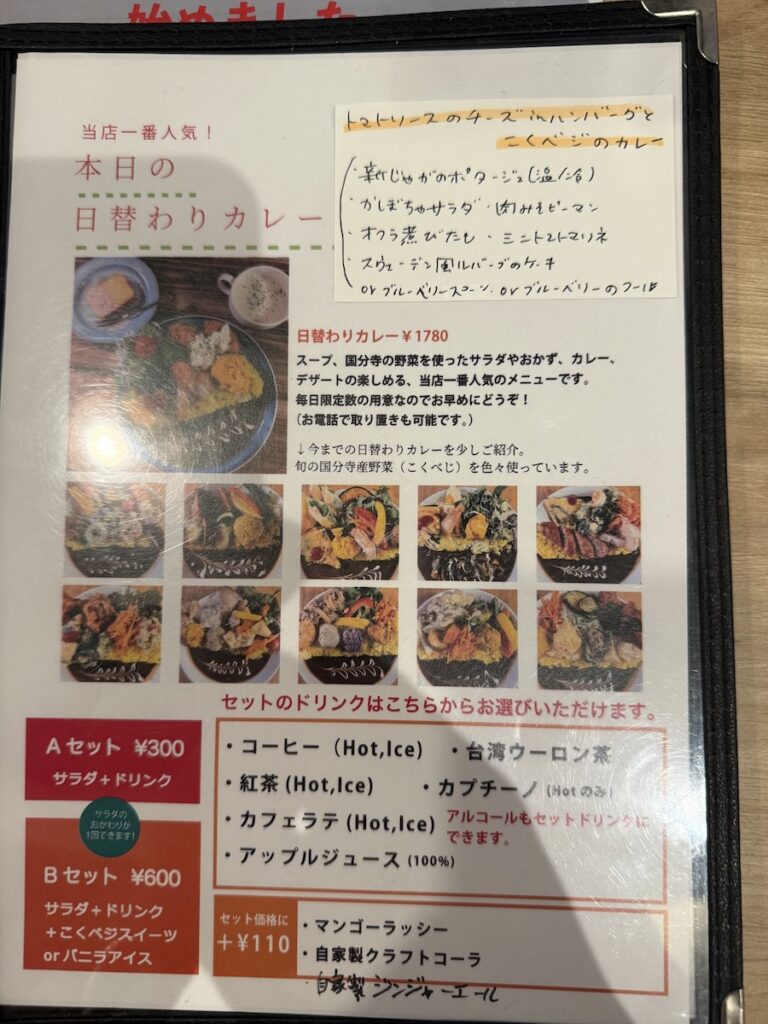 始めました
当店一番人気！
本日の
日替わりカレー
トマトソースのチーズinハンバーグと
こくベジのカレー
・新じゃがのポタージュ(温/冷)
・かぼちゃサラダ ・肉みそピーマン
・オクラ煮びたし ・ミニトマトマリネ
・スウェーデン風ルバーブのケーキ
or ブルーベリースコーン or ブルーベリーのフール
日替わりカレー￥1780
スープ、国分寺の野菜を使ったサラダやおかず、カレー、
デザートの楽しめる、当店一番人気のメニューです。
毎日限定数の用意なのでお早めにどうぞ！
（お電話で取り置きも可能です。）
↓今までの日替わりカレーを少しご紹介。
旬の国分寺産野菜（こくべじ）を色々使っています。
セットのドリンクはこちらからお選びいただけます。
Aセット ￥300
サラダ＋ドリンク
サラダの
おかわりが
1回できます!
Bセット ￥600
サラダ＋ドリンク
＋こくベジスイーツ
or バニラアイス
・コーヒー（Hot,Ice）
・台湾ウーロン茶
・紅茶 (Hot,Ice)
・カプチーノ (Hot のみ)
・カフェラテ (Hot,Ice)
アルコールもセットドリンクに
できます。
・アップルジュース (100%)
セット価格に
＋￥110
・マンゴーラッシー
・自家製クラフトコーラ
・自家製ジンジャーエール